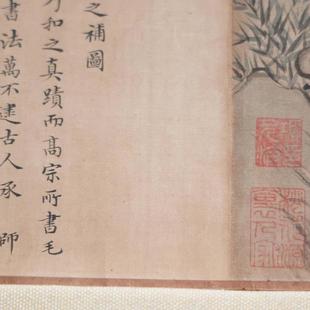 之補圖
和之真蹟而高宗所書毛
書法萬不逮古人承 師